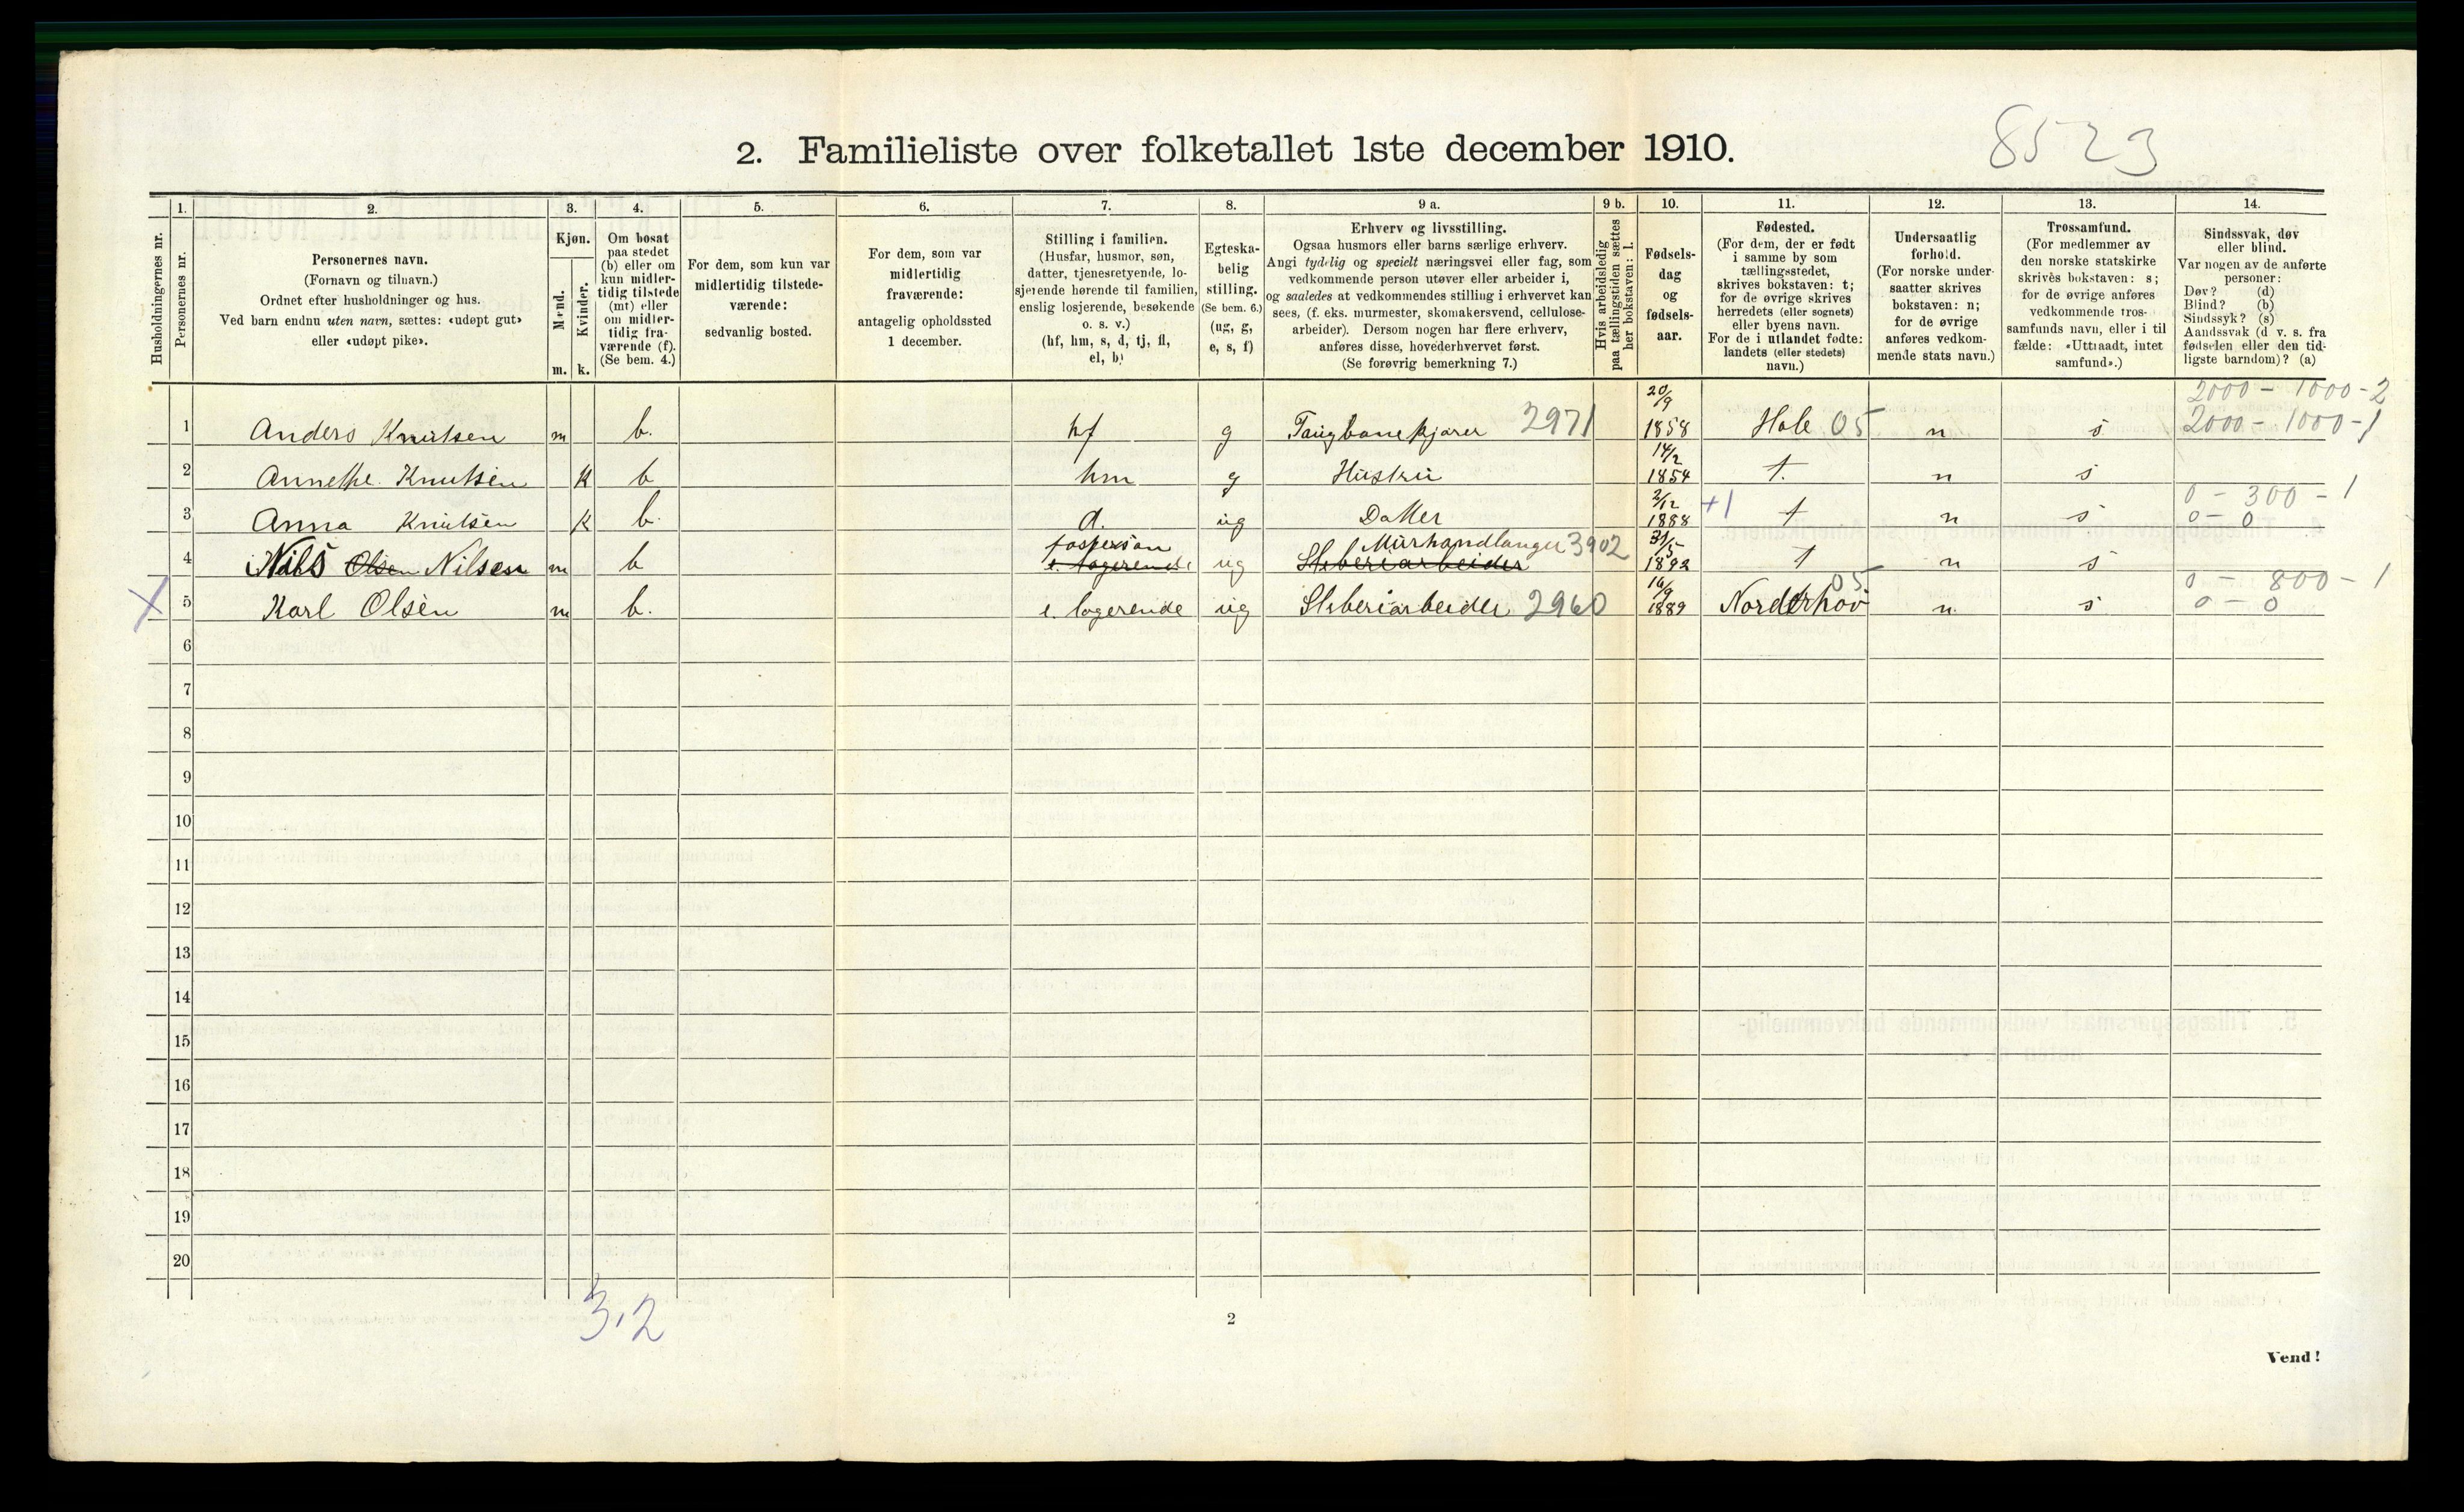 8523
2. Familieliste over folketallet 1ste december 1910.
1. 2. 3. 4. 5. 6. 7. 8. 9 a. 9 b. 10. 11. 12. 13. 14.
Husholdningernes nr.
Personernes nr.
Personernes navn.
(Fornavn og tilnavn.)
Ordnet efter husholdninger og hus.
Ved barn endnu uten navn, sættes: «udøpt gut»
eller «udøpt pike».
Kjøn.
Mænd.
Kvinder.
m. k.
Om bosat
paa stedet
(b) eller om
kun midler-
tidig tilstede
(mt) eller
om midler-
tidig fra-
værende (f).
(Se bem. 4.)
For dem, som kun var
midlertidig tilstede-
værende:
sedvanlig bosted.
For dem, som var
midlertidig
fraværende:
antagelig opholdssted
1 december.
Stilling i familien.
(Husfar, husmor, søn,
datter, tjenestetyende, lo-
sjerende hørende til familien,
enslig losjerende, besøkende
o. s. v.)
(hf, hm, s, d, tj, fl,
el, b)
Egteska-
belig
stilling.
(Se bem. 6.)
(ug, g,
e, s, f)
Erhverv og livsstilling.
Ogsaa husmors eller barns særlige erhverv.
Angi tydelig og specielt næringsvei eller fag, som
vedkommende person utøver eller arbeider i,
og saaledes at vedkommendes stilling i erhvervet kan
sees, (f. eks. murmester, skomakersvend, cellulose-
arbeider). Dersom nogen har flere erhverv,
anføres disse, hovederhvervet først.
(Se forøvrig bemerkning 7.)
Hvis arbeidsledig
paa tællingstiden sættes
her bokstaven: l.
Fødsels-
dag
og
fødsels-
aar.
Fødested.
(For dem, der er født
i samme by som
tællingsstedet,
skrives bokstaven: t;
for de øvrige skrives
herredets (eller sognets)
eller byens navn.
For de i utlandet fødte:
landets (eller stedets)
navn.)
Undersaatlig
forhold.
(For norske under-
saatter skrives
bokstaven: n;
for de øvrige
anføres vedkom-
mende stats navn.)
Trossamfund.
(For medlemmer av
den norske statskirke
skrives bokstaven: s;
for de øvrige anføres
vedkommende tros-
samfunds navn, eller i til-
fælde: «Uttraadt, intet
samfund».)
Sindssvak, døv
eller blind.
Var nogen av de anførte
personer:
Døv? (d)
Blind? (b)
Sindssyk? (s)
Aandssvak (d. v. s. fra
fødselen eller den tid-
ligste barndom)? (a)
20/9 2000 - 1000 - 2
1 Anders Knutsen m b. hf g Taugbanekjører 2971 1858 Hole 05 n s 2000 - 1000 - 1
14/2
2 Annethe Knutsen k b hm g Hustru 1854 t. n s
2/12 +1 0 - 300 - 1
3 Anna Knutsen k b. d. ug Datter 1888 t n s 0 - 0
fosterson Murhandlanger 3902 31/5
4 Nils Olsen Nilsen m b e. logerende ug Sliberiarbeider 1892 t n s
16/9 05 0 - 800 - 1
X 5 Karl Olsen m b. e. logerende ug Sliberiarbeider 2960 1889 Norderhov n s 0 - 0
6
7
8
9
10
11
12
13
14
15
16
17
18
19
20
3,2
2
Vend!